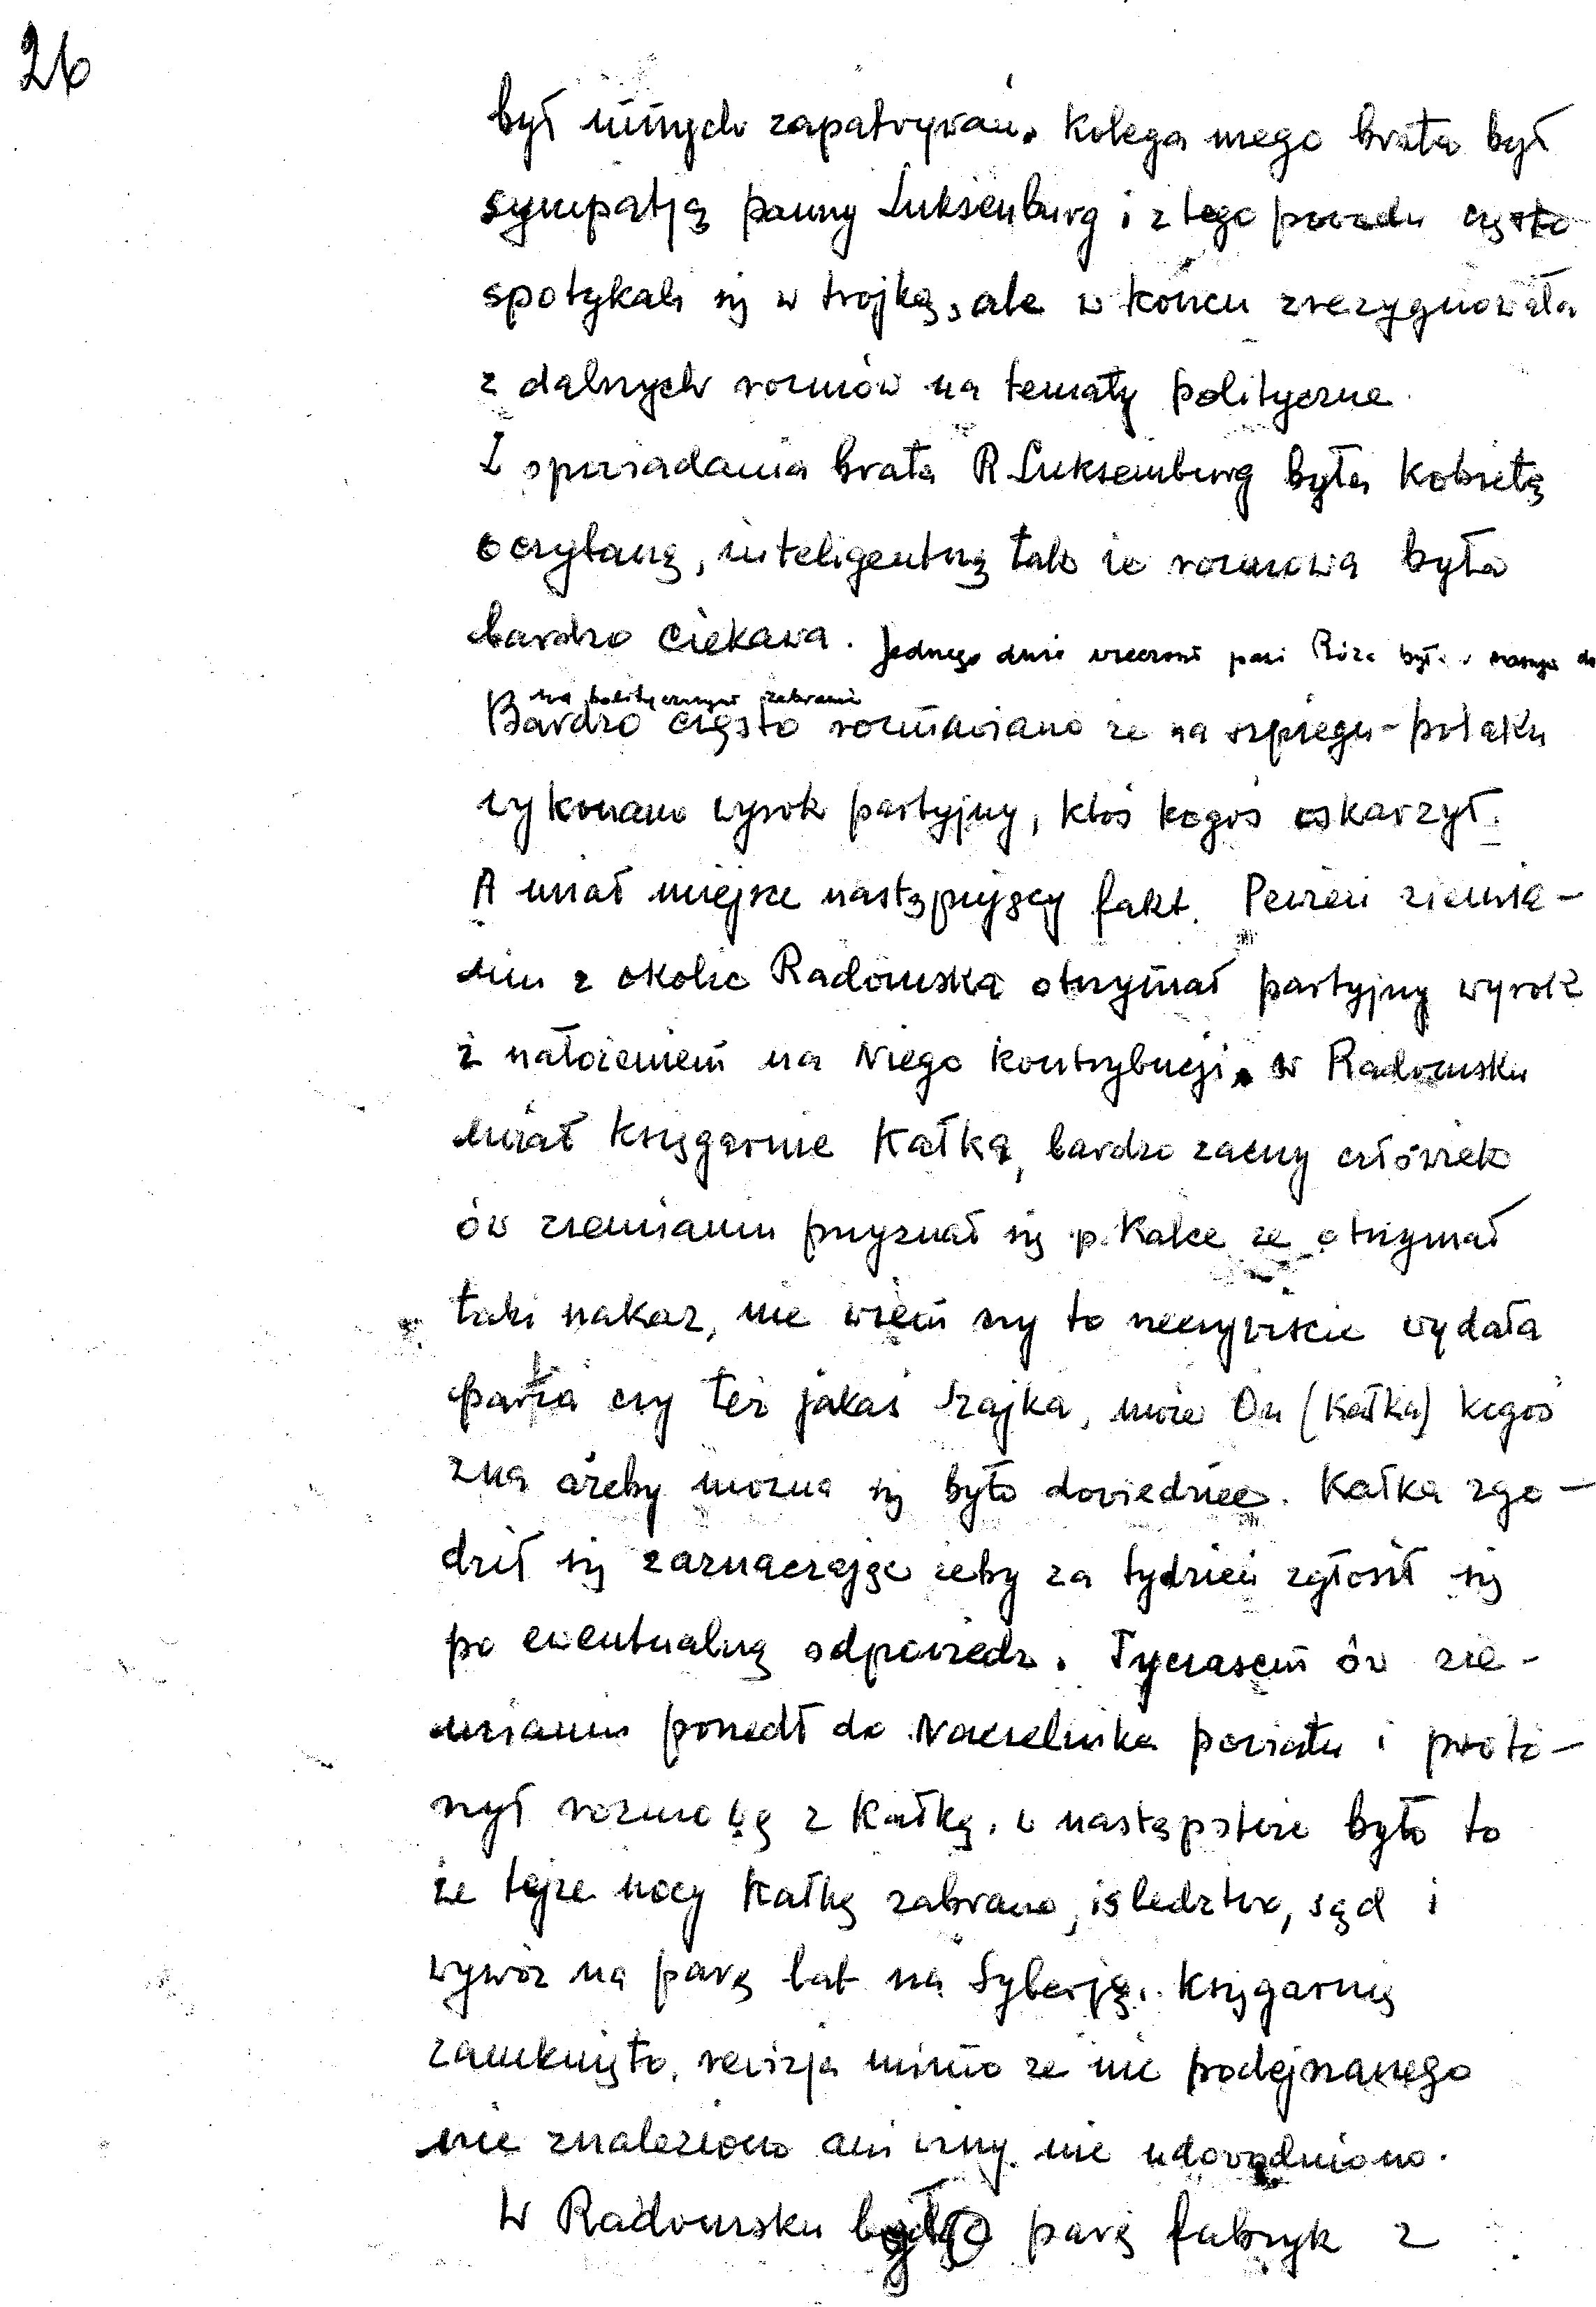 26
był innych zapatrywań. Kolega mego brata był
sympatją panny Luksenburg i z tego powodu często
spotykali się w trojkę, ale w końcu zrezygnowała
z dalszych rozmów na tematy polityczne.
Z opowiadania brata R Luksemburg była kobietą
oczytaną, inteligentną tak że rozmowa była
bardzo ciekawa. Jednego dnia wieczorem pani Róża była w naszym do
na politycznym zebraniu
Bardzo często rozmawiano że na szpiegu-polaku
wykonano wyrok partyjny, ktoś kogoś oskarżył.
A miał miejsce następujący fakt. Pewien ziemia-
nin z okolic Radomska otrzymał partyjny wyrok
z nałożeniem na Niego kontrybucji. w Radomsku
miał księgarnie Kałka, bardzo zacny człówiek
ów ziemianin przyznał się p. Kałce że otrzymał
taki nakaz, nie wiem czy to rzeczywiście wydała
partia czy też jakaś szajka, może On (Kałka) kogoś
zna ażeby można się było dowiedzieć. Kałka zgo-
dził się zaznaczając żeby za tydzień zgłosił się
po ewentualną odpowiedz. Tyczasem ów zie-
mianin poszedł do Naczelnika powiatu i powtó-
rzył rozmowę z Kałką, w następstwie było to
że tejże nocy Kałkę zabrano, i śledztwo, sąd i
wywóz na parę lat na Syberję. Księgarnię
zamknięto, rewizja mimo że nic podejrzanego
nie znaleziono ani winy nie udowodniono.
W Radomsku było parę fabryk z